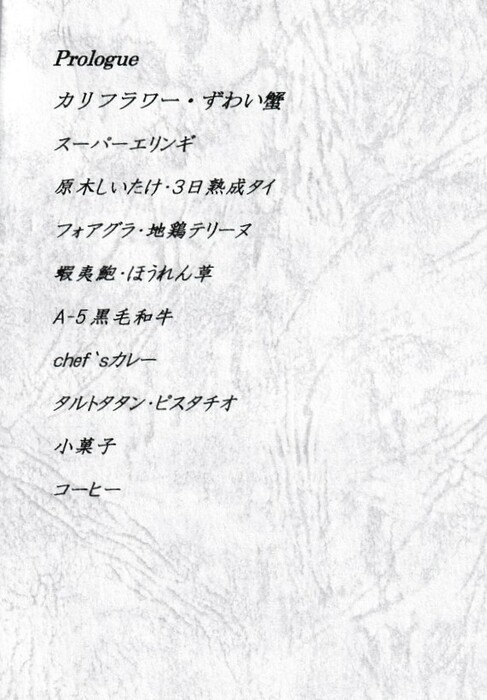 Prologue
カリフラワー・ずわい蟹
スーパーエリンギ
原木しいたけ・3日熟成タイ
フォアグラ・地鶏テリーヌ
蝦夷鮑・ほうれん草
A-5黒毛和牛
chef`sカレー
タルトタタン・ピスタチオ
小菓子
コーヒー